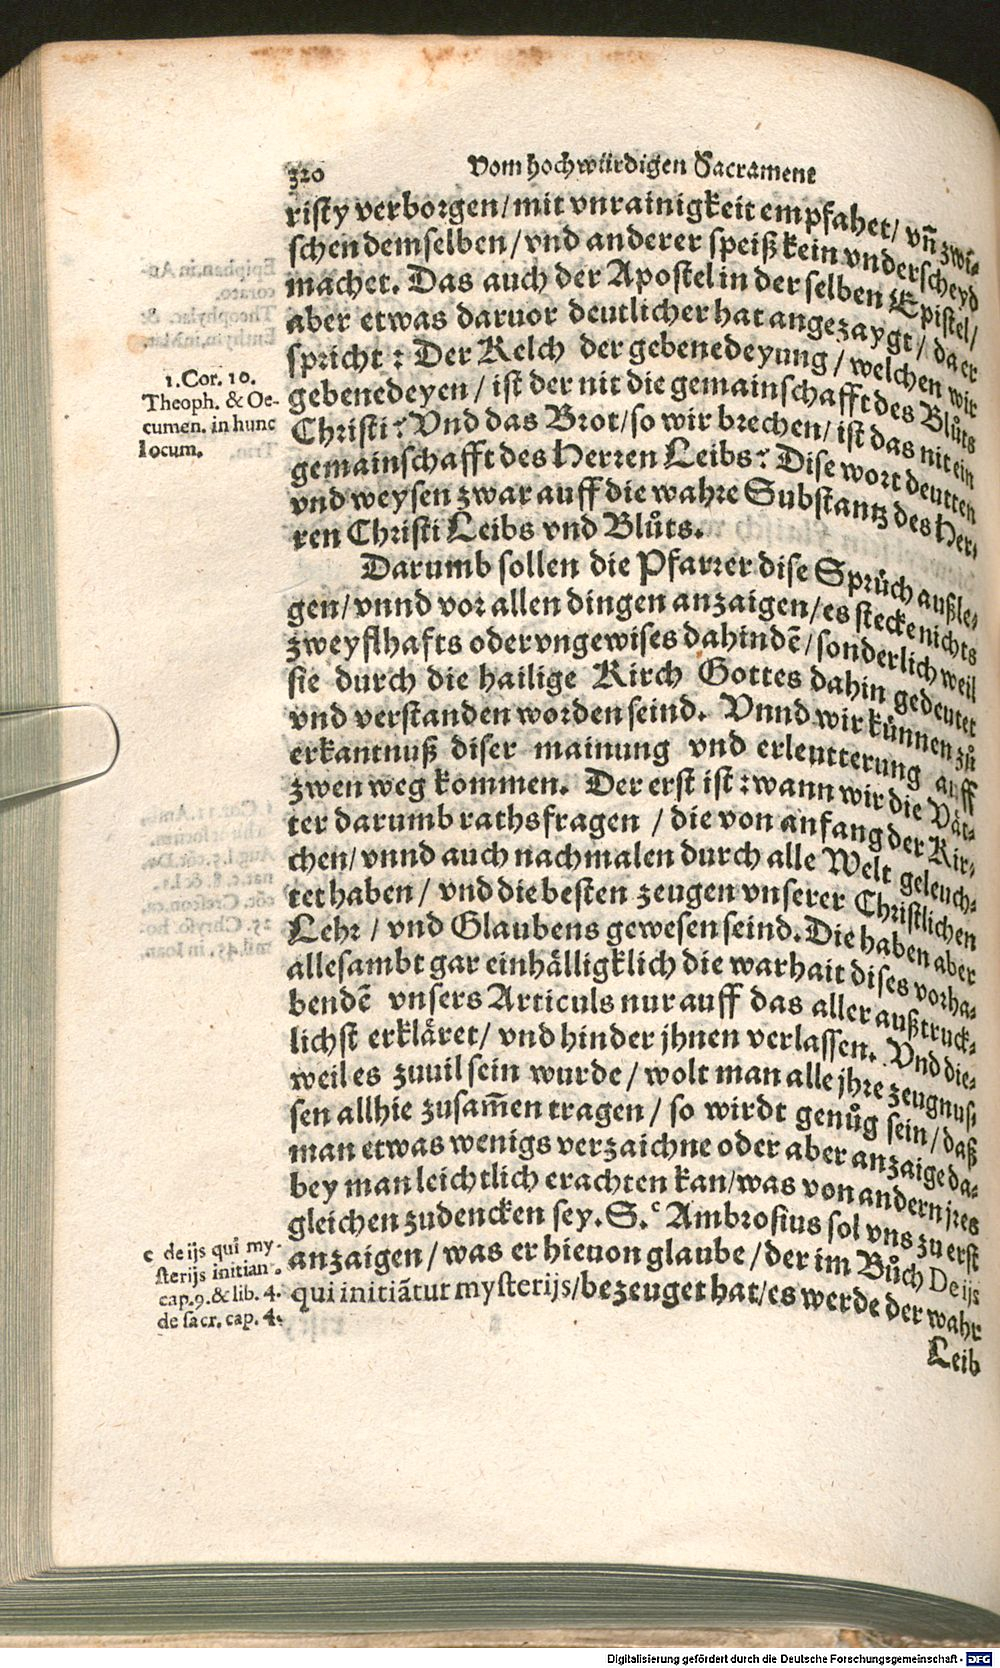 320
Vom hochwürdigen Sacrament
risty verborgen/mit vnrainigkeit empfahet/ vñ zwi-
schen demselben/vnd anderer speiß kein vnderscheyd
machet. Das auch der Apostel in der selben Epistel/
aber etwas daruor deutlicher hat angezaygt/ da er
spricht: Der Kelch der gebenedeyung/welchen wir
gebenedeyen/ ist der nit die gemainschafft des Blůts
Christi? Vnd das Brot/so wir brechen/ist das nit ein
gemainschafft des Herren Leibs? Dise wort deutten
vnd weysen zwar auff die wahre Substantz des Her-
ren Christi Leibs vnd Blůts.
1. Cor. 10.
Theoph. & Oe-
cumen. in hunc
locum.
Darumb sollen die Pfarrer dise Sprüch außle-
gen/vnnd vor allen dingen anzaigen/es stecke nichts
zweyflhafts oder vngewises dahindē/sonderlich weil
sie durch die hailige Kirch Gottes dahin gedeutet
vnd verstanden worden seind. Vnnd wir künnen zů
erkantnuß diser mainung vnd erleutterung auff
zwen weg kommen. Der erst ist: wann wir die Vät-
ter darumb rathsfragen / die von anfang der Kir-
chen/vnnd auch nachmalen durch alle Welt geleuch-
tet haben/ vnd die besten zeugen vnserer Christlichen
Lehr / vnd Glaubens gewesen seind. Die haben aber
allesambt gar einhälligklich die warhait dises vorha-
bendē vnsers Articuls nur auff das aller außtruck-
lichst erkläret/ vnd hinder jhnen verlassen. Vnd die-
weil es zuuil sein wurde/ wolt man alle jhre zeugnus-
sen allhie zusam̄en tragen/ so wirdt genůg sein/ daß
man etwas wenigs verzaichne oder aber anzaige da-
bey man leichtlich erachten kan/was von andern jres
gleichen zudencken sey. S. c Ambrosius sol vns zu erst
anzaigen/was er hieuon glaube/der im Bůch De ijs
qui initiātur mysterijs/bezeuget hat/es werde der wahr
Leib
c de ijs qui my-
sterijs initian.
cap. 9. & lib. 4.
de sacr. cap. 4.
Digitalisierung gefördert durch die Deutsche Forschungsgemeinschaft - DFG